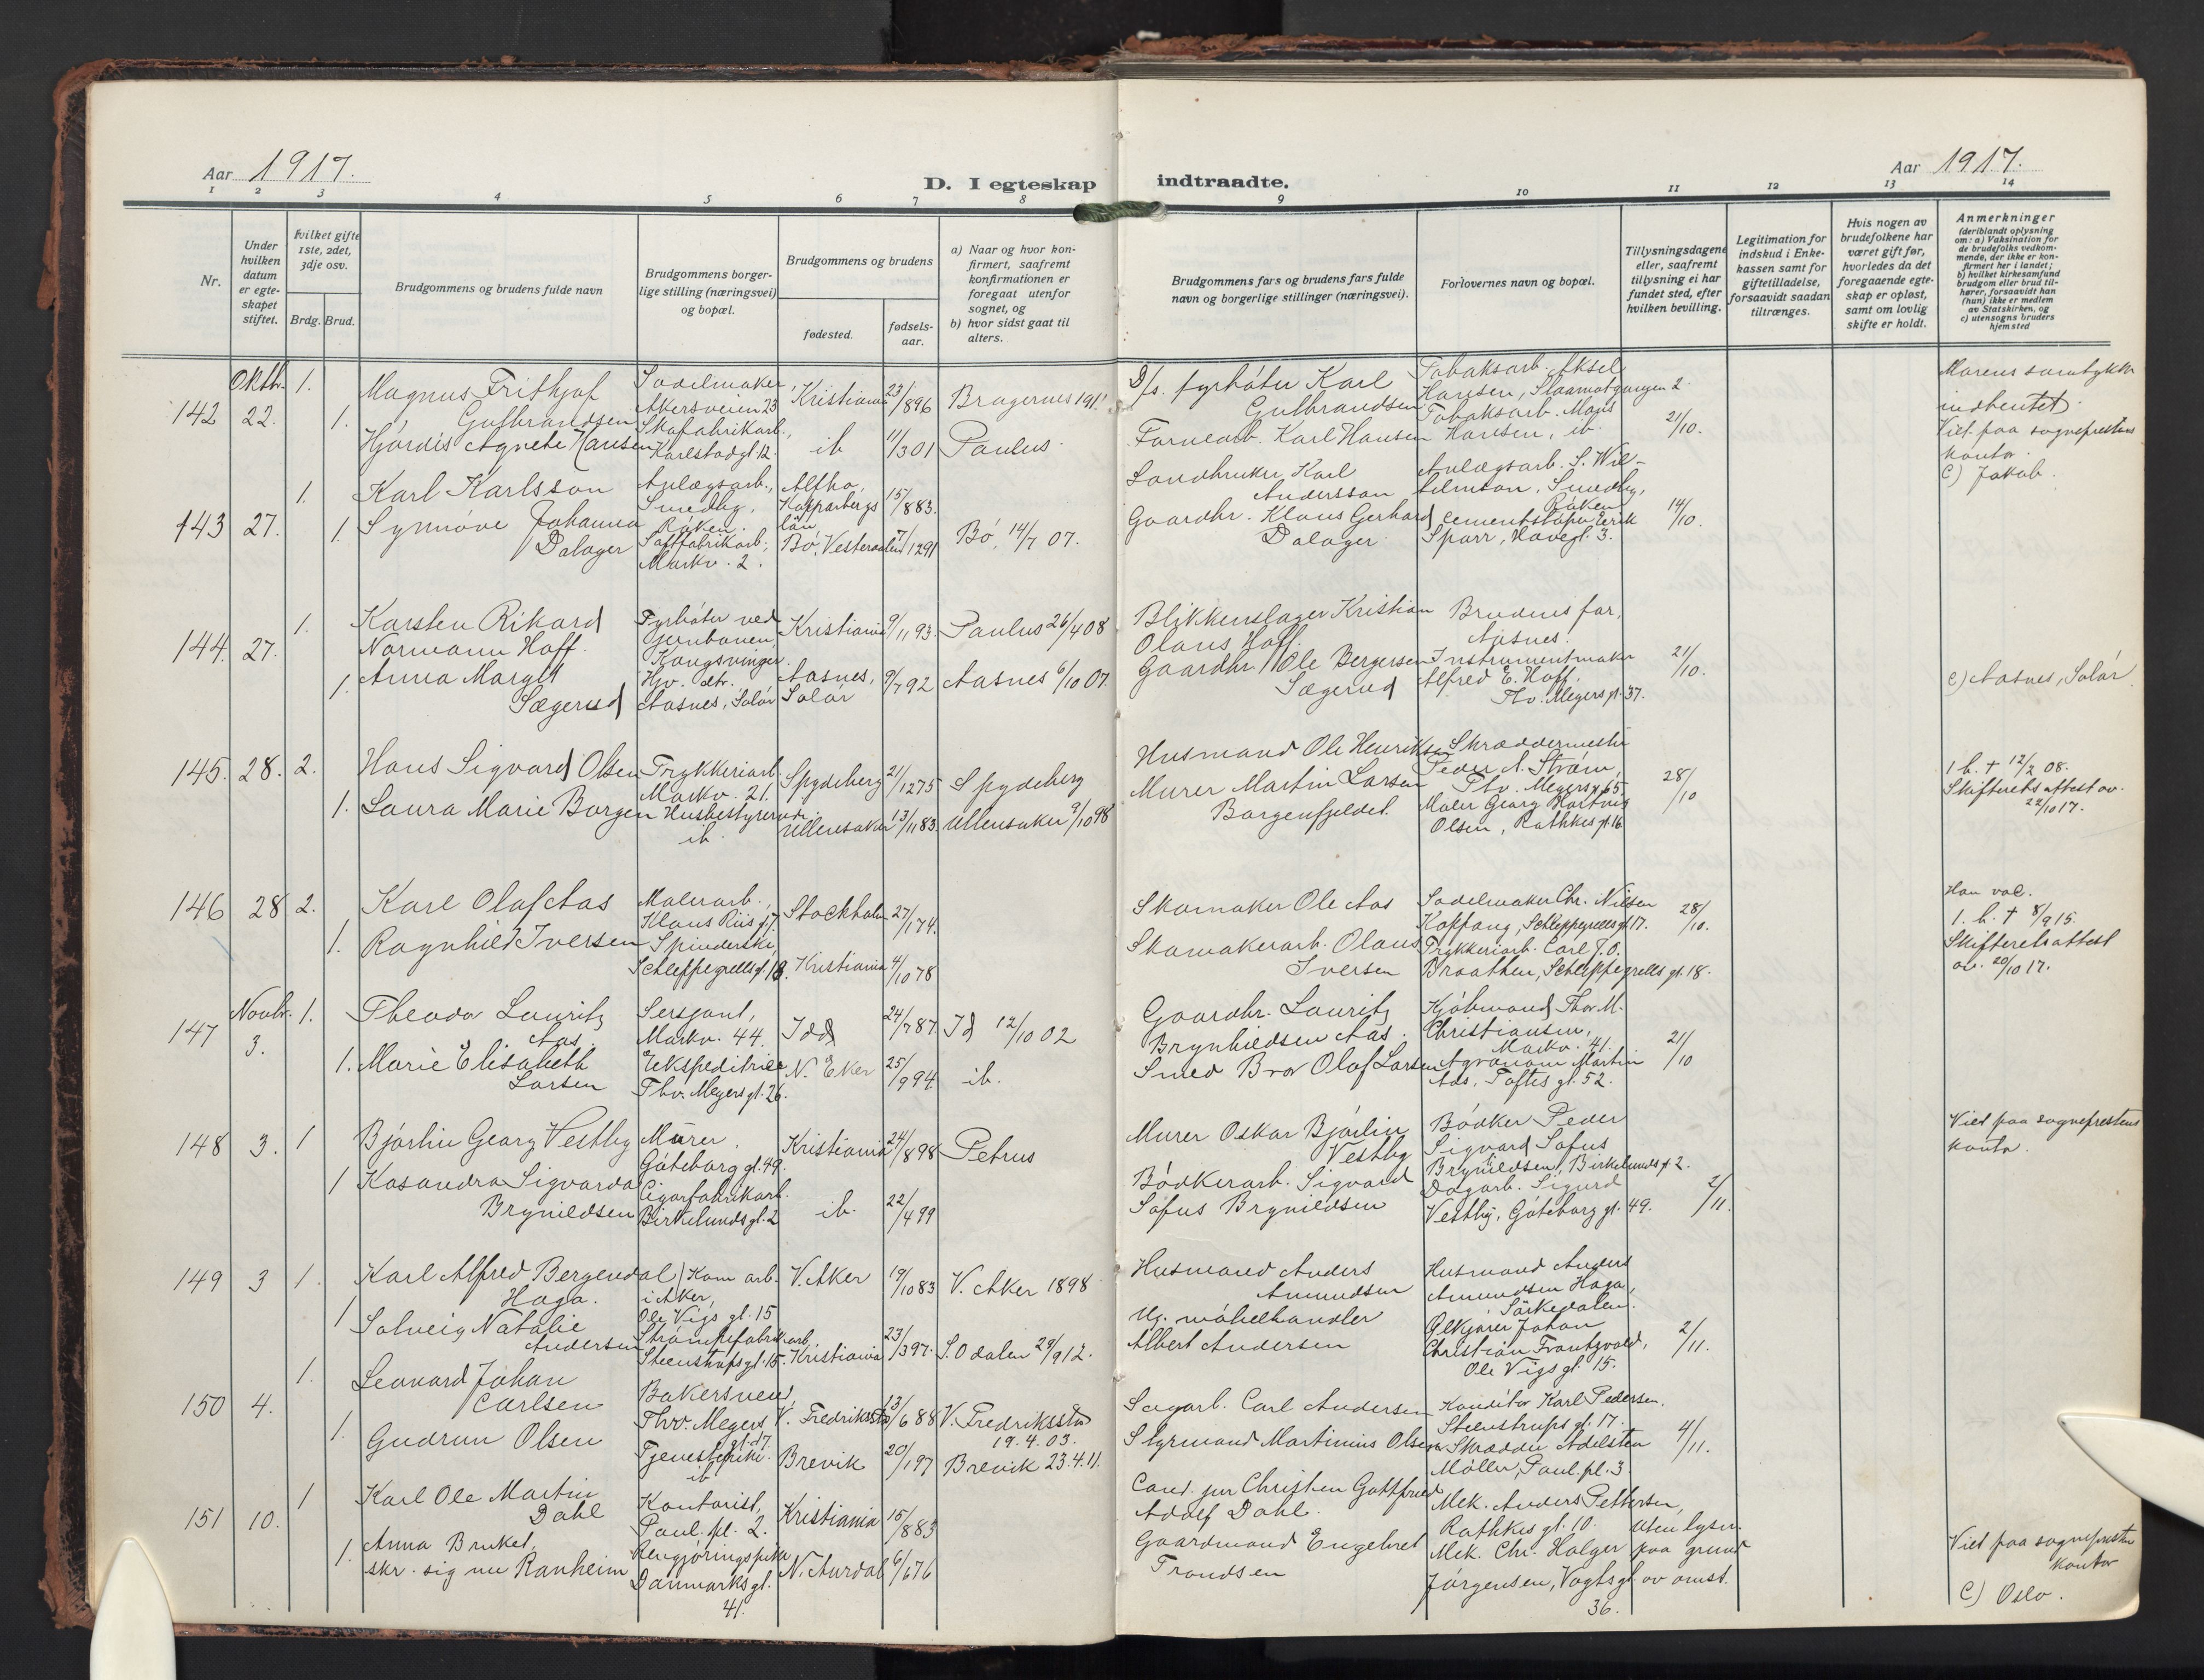 Aar 1917.
D. I egteskap indtraadte.
Aar 1917.
1 2 3 4 5 6 7 8 9 10 11 12 13 14
Nr.
Under hvilken datum er egteskapet stiftet.
Hvilket gifte 1ste, 2det, 3dje osv.
Brdg. Brud.
Brudgommens og brudens fulde navn
Brudgommens borgerlige stilling (næringsvei) og bopæl.
Brudgommens og brudens
fødested.
fødselsaar.
a) Naar og hvor konfirmert, saafremt konfirmationen er foregaat utenfor sognet, og
b) hvor sidst gaat til alters.
Brudgommens fars og brudens fars fulde navn og borgerlige stillinger (næringsvei).
Forlovernes navn og bopæl.
Tillysningsdagene eller, saafremt tillysning ei har fundet sted, efter hvilken bevilling.
Legitimation for indskud i Enkekassen samt for giftetilladelse, forsaavidt saadan tiltrænges.
Hvis nogen av brudefolkene har været gift før, hvorledes da det foregaaende egteskap er opløst, samt om lovlig skifte er holdt.
Anmerkninger
(deriblandt oplysning om: a) Vaksination for de brudefolks vedkommende, der ikke er konfirmert her i landet; b) hvilket kirkesamfund brudgom eller brud tilhører, forsaavidt han (hun) ikke er medlem av Statskirken, og c) utensogns bruders hjemsted
142 Oktb. 22. 1. 1.
Magnus Frithjof Gulbrandsen
Hjørdis Agnete Hansen
Sadelmaker, Akersveien 23
Skofabrikarb., Karlstadgt 12.
Kristiania 23/896 Bragernes 1911
ib 11/301 Paulus
D/s. fyrbøter Karl Gulbrandsen
Farvearb. Karl Hansen
Tobaksarb. Aksel Hansen, Slaamotgangen 2.
Tobaksarb. Hansen, ib.
21/10.
Morens samtykke indhentet.
Viet paa sogneprestens kontor.
C) Jakob.
143 27. 1. 1.
Karl Karlsson
Synnøve Johanna Dalager
Anlægsarb., Smedby, Røken.
Saftfabrikarb., Markv. 2.
Kopparbergs län 15/883.
Bø, Vesteraalen 7/1291 Bø, 14/7 07.
Landbruker Karl Andersson
Gaardbr. Klaus Gerhard Dalager
Anlægsarb. S. Wilhelmson, Smedby, Røken
Cementstøper Erik Sparr, Havegt. 3.
14/10.
144. 27. 1. 1.
Karsten Rikard Normann Hoff.
Anna Margit Sægerud
Fyrbøter ved Jernbanen, Kongsvinger.
Hjv. dtr. Aasnes, Solør
Kristiania 9/11 93. Paulus 26/4 08
Aasnes, Solør 9/7 92 Aasnes 6/10 07.
Blikkenslager Kristian Olaus Hoff.
Gaardbr. Ole Bergersen Sægerud
Brudens far, Aasnes.
Instrumentmaker Alfred E. Hoff, Thv. Meyers gt. 37.
21/10.
c) Aasnes, Solør.
145. 28. 2. 1.
Hans Sigvard Olsen
Laura Marie Borgen
Trykkeriarb. Markv. 21.
Husbestyrerinde ib
Spydeberg 21/1275 Spydeberg
Ullensaker 13/1183. Ullensaker 9/10 98
Husmand Ole Henriksen
Murer Martin Larsen Borgenfjeldet.
Skræddermester Peder A. Strøm, Thv. Meyersgt 65.
Maler Georg Hartvig Olsen, Rathkes gt. 16
28/10
1 h. † 12/2 08.
Skifterets attest av. 22/10 17.
146 28 2. 1.
Karl Olaf Aas
Ragnhild Iversen
Malerarb., Klaus Riis gt. 7.
Spinderske, Schleppegrells gt. 18.
Stockholm 27/174.
Kristiania 4/1078
Skomaker Ole Aas
Skomakerarb. Olaus Iversen
Sadelmaker Chr. Nilsen Koppang, Schleppegrells gt 17.
Trykkeriarb. Carl J. O. Braathen, Schleppegrells gt. 18.
28/10.
Han vac.
1. h. † 8/9 15.
Skifteretsattest av. 20/10 17.
147 Novbr. 3. 1. 1.
Theodor Lauritz Aas.
Marie Elisabeth Larsen
Sersjant, Markv. 44.
Ekspeditrice Thv. Meyers gt. 26.
Idd 24/787 Id 12/10 02
N. Eker 25/994 ib.
Gaardbr. Lauritz Brynhildsen Aas.
Smed Bror Olaf Larsen
Kjøbmand Thor M. Christiansen, Markv. 41.
Agronom Martin Aas, Toftes gt. 52.
21/10
148 3. 1 1
Bjørlin Georg Vestby
Kasandra Sigvarda Brynildsen
Murer. Gøteborg gt. 49.
Cigarfabrikarb. Birkelunds gt. 2
Kristiania 24/898 Petrus
ib. 22/499
Murer Oskar Bjørlin Vestby
Bødkerarb. Sigvard Sofus Brynildsen
Bødker Peder Sigvard Sofus Brynildsen, Birkelunds gt 2.
Dagarb. Sigurd Vestby, Gøteborg gt. 49.
2/11.
Viet paa sogneprestens kontor.
149 3 1. 1
Karl Alfred Bergendal Haga.
Solveig Natalie Andersen
Kom arb. i Aker, Ole Vigs gt. 15
Strømpefabrikarb., Steenstrupsgt. 15.
V. Aker 19/1083 V. Aker 1898
Kristiania 23/397. S. Odalen 29/9 12.
Husmand Anders Amundsen
Ug. møbelhandler Albert Andersen
Husmand Anders Amundsen Haga, Sørkedalen.
Ølkjører Johan Christian Frantzvold, Ole Vigs gt. 15.
2/11.
150 4. 1. 1.
Leonard Johan Carlsen
Gudrun Olsen
Bakersvend, Thv. Meyers gt. 27.
Tjenestepike ib
V. Fredrikstad 13/688 V. Fredrikstad 19.4.03.
Brevik 20/197 Brevik 23.4.11.
Sagarb. Carl Andersen
Styrmand Martinius Olsen
Konditor Karl Pedersen. Steenstrups gt. 17.
Skrædder Adelsten Møller, Paul. pl. 3.
4/11.
151 10. 1 1.
Karl Ole Martin Dahl
Anna Bruket, skr. sig nu Ranheim
Kontorist, Paul. pl. 2.
Rengjøringspike Danmarks gt. 41.
Kristiania 15/883
N. Aurdal 6/676
Cand. jur Christen Gottfried Adolf Dahl.
Gaardmand Engebret Trondsen
Mek. Anders Pettersen, Rathkes gt. 10.
Mek. Chr. Holger Jørgensen, Vogts gt. 36.
Uten lysn. paa grund av omst.
Viet paa sogneprestens kontor
C) Oslo.